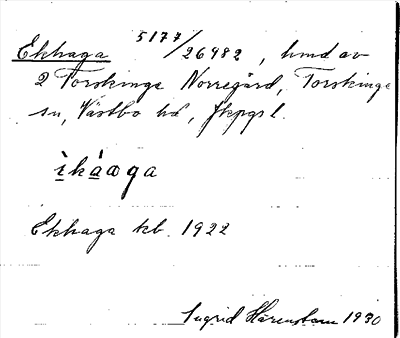 Ekhaga 5177/26982, hmd av
2 Torskinge Norregård, Torskinge
sn, Västbo hd, Jkpgs l.
ìkàaga
Ekhaga kb. 1922
Ingrid Härenstam 1930